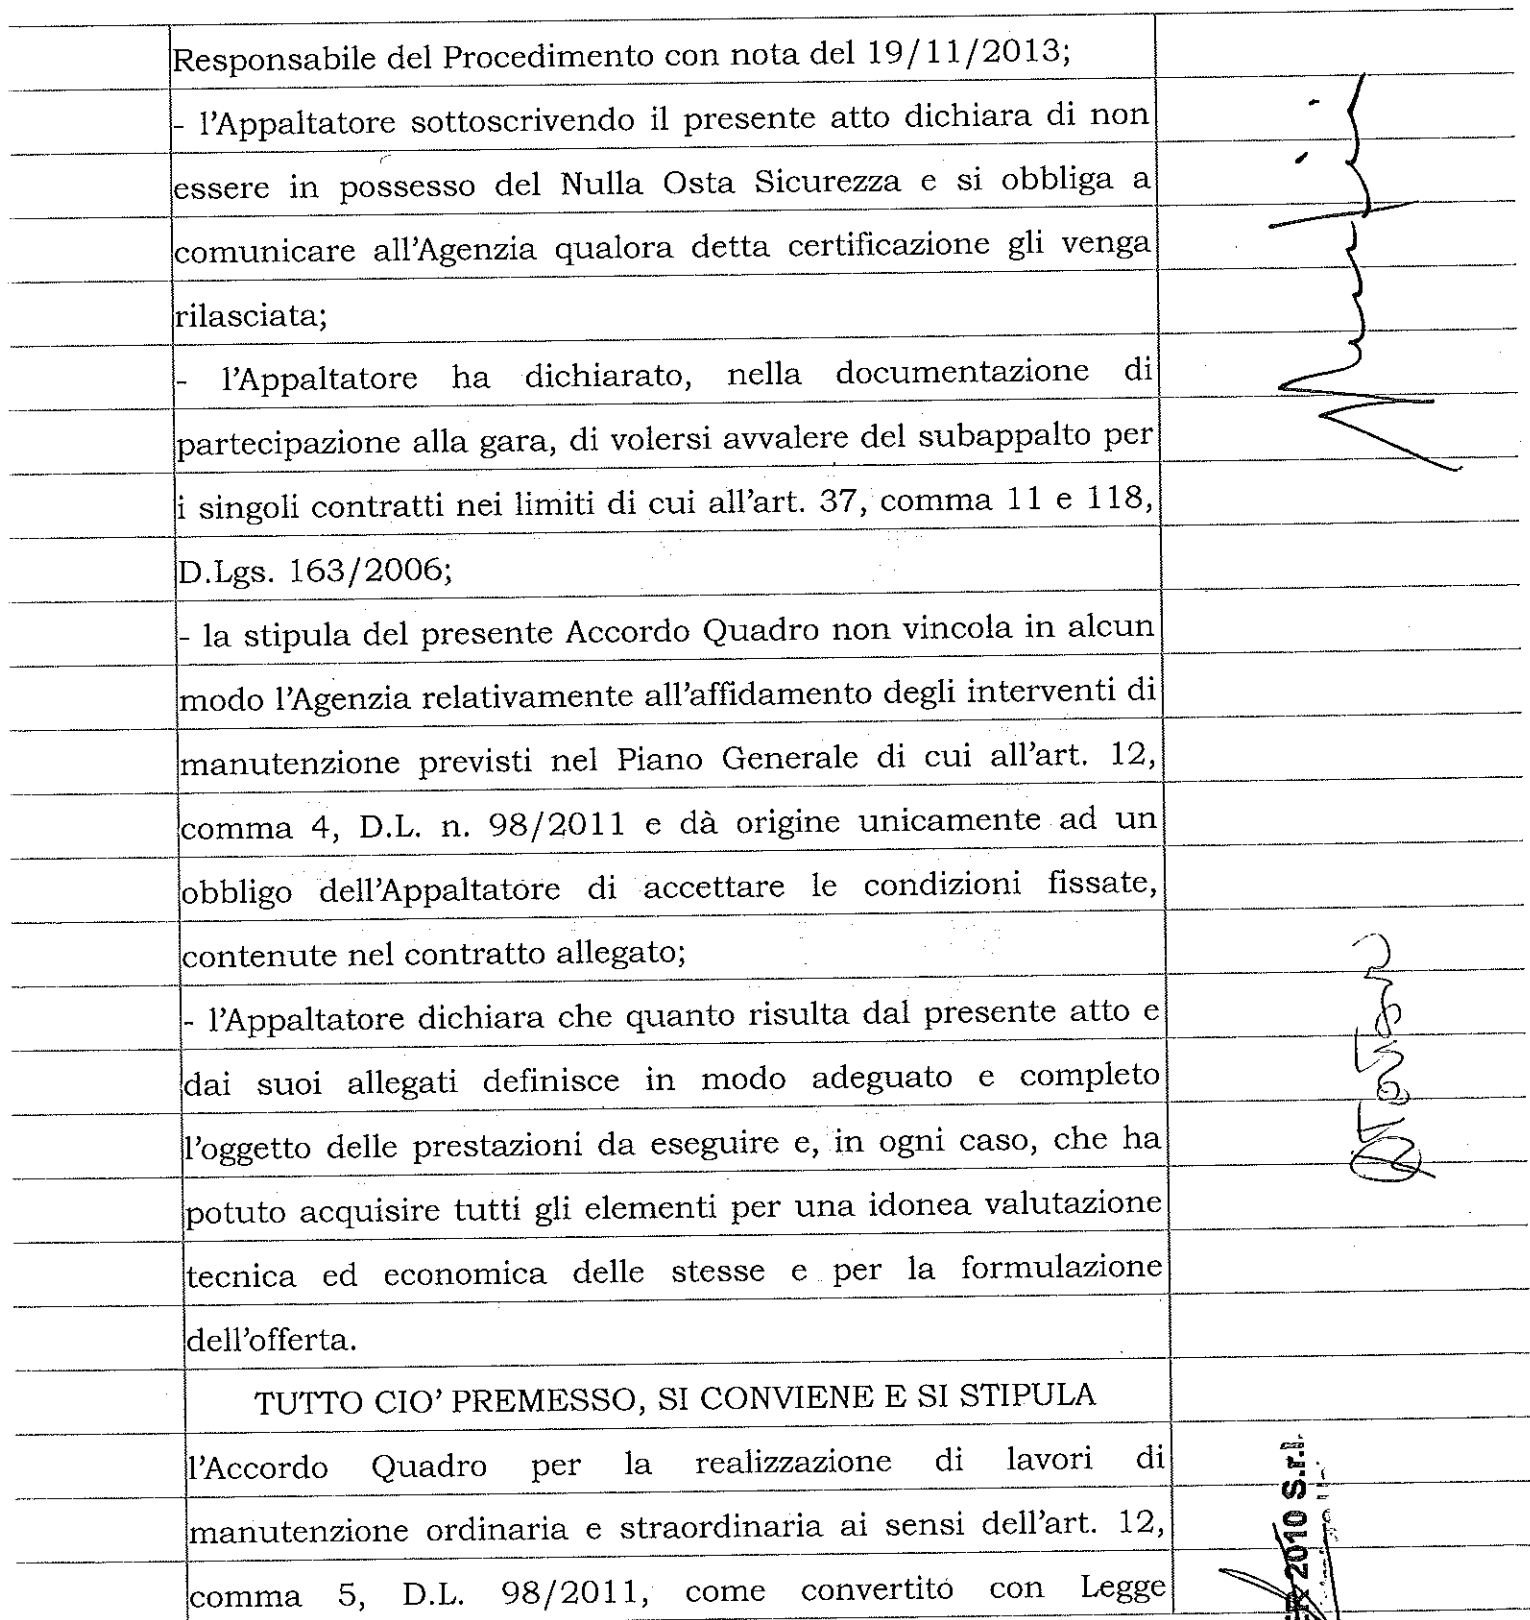 Responsabile del Procedimento con nota del 19/11/2013;
- l'Appaltatore sottoscrivendo il presente atto dichiara di non
essere in possesso del Nulla Osta Sicurezza e si obbliga a
comunicare all'Agenzia qualora detta certificazione gli venga
rilasciata;
- l'Appaltatore ha dichiarato, nella documentazione di
partecipazione alla gara, di volersi avvalere del subappalto per
i singoli contratti nei limiti di cui all'art. 37, comma 11 e 118,
D.Lgs. 163/2006;
- la stipula del presente Accordo Quadro non vincola in alcun
modo l'Agenzia relativamente all'affidamento degli interventi di
manutenzione previsti nel Piano Generale di cui all'art. 12,
comma 4, D.L. n. 98/2011 e dà origine unicamente ad un
obbligo dell'Appaltatore di accettare le condizioni fissate,
contenute nel contratto allegato;
- l'Appaltatore dichiara che quanto risulta dal presente atto e
dai suoi allegati definisce in modo adeguato e completo
l'oggetto delle prestazioni da eseguire e, in ogni caso, che ha
potuto acquisire tutti gli elementi per una idonea valutazione
tecnica ed economica delle stesse e per la formulazione
dell'offerta.
TUTTO CIO' PREMESSO, SI CONVIENE E SI STIPULA
l'Accordo Quadro per la realizzazione di lavori di
manutenzione ordinaria e straordinaria ai sensi dell'art. 12,
comma 5, D.L. 98/2011, come convertito con Legge
2010 S.r.l.